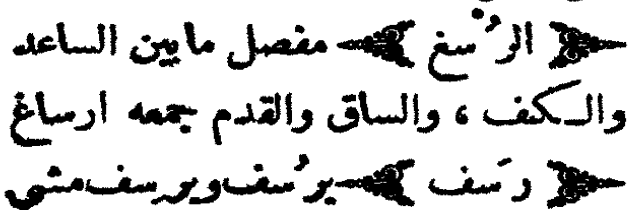 ﴿ الرُسْغ ﴾ مفصل مابين الساعد
والكف ، والساق والقدم جمعه ارساغ
﴿ رَسف ﴾ يرُسف ويرسف مشى